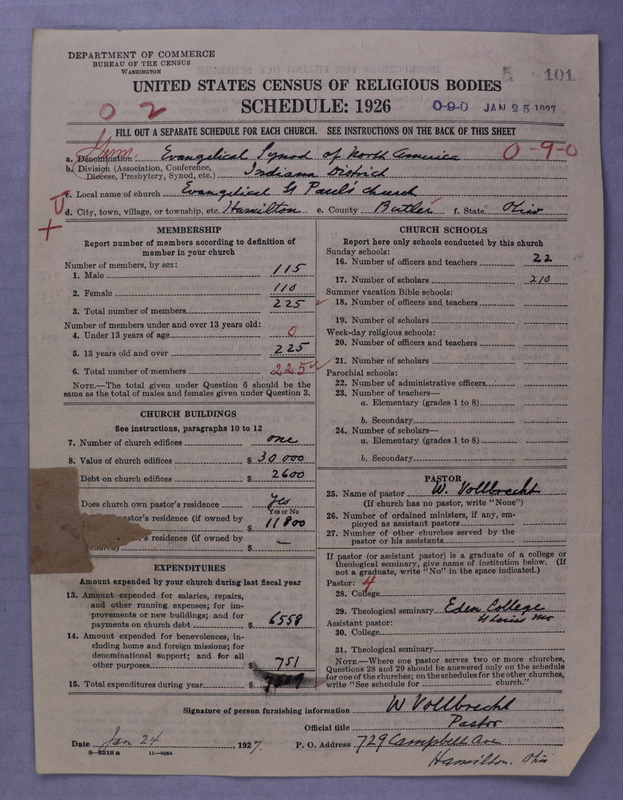 DEPARTMENT OF COMMERCE
BUREAU OF THE CENSUS
WASHINGTON
101
UNITED STATES CENSUS OF RELIGIOUS BODIES
SCHEDULE: 1926
0-9-0 JAN 25 1927
0 2
FILL OUT A SEPARATE SCHEDULE FOR EACH CHURCH. SEE INSTRUCTIONS ON THE BACK OF THIS SHEET
a. Denomination Evangelical Synod of North America 0-9-0
b. Division (Association, Conference, Diocese, Presbytery, Synod, etc.) Indiana District
c. Local name of church Evangelical St Paul's Church
d. City, town, village, or township, etc. Hamilton e. County Butler f. State Ohio
MEMBERSHIP
Report number of members according to definition of member in your church
Number of members, by sex:
1. Male 115
2. Female 110
3. Total number of members 225
Number of members under and over 13 years old:
4. Under 13 years of age 0
5. 13 years old and over 225
6. Total number of members 225
NOTE.—The total given under Question 6 should be the same as the total of males and females given under Question 3.
CHURCH BUILDINGS
See instructions, paragraphs 10 to 12
7. Number of church edifices one
8. Value of church edifices $ 30 000
Debt on church edifices $ 2600
Does church own pastor's residence Yes
Yes or No
tor's residence (if owned by $ 11800
's residence (if owned by
church) $ —
EXPENDITURES
Amount expended by your church during last fiscal year
13. Amount expended for salaries, repairs, and other running expenses; for improvements or new buildings; and for payments on church debt $ 6558
14. Amount expended for benevolences, including home and foreign missions; for denominational support; and for all other purposes $ 751
15. Total expenditures during year $
CHURCH SCHOOLS
Report here only schools conducted by this church
Sunday schools:
16. Number of officers and teachers 22
17. Number of scholars 210
Summer vacation Bible schools:
18. Number of officers and teachers
19. Number of scholars
Week-day religious schools:
20. Number of officers and teachers
21. Number of scholars
Parochial schools:
22. Number of administrative officers
23. Number of teachers—
a. Elementary (grades 1 to 8)
b. Secondary
24. Number of scholars—
a. Elementary (grades 1 to 8)
b. Secondary
PASTOR
25. Name of pastor W. Vollbrecht
(If church has no pastor, write "None")
26. Number of ordained ministers, if any, employed as assistant pastors
27. Number of other churches served by the pastor or his assistants
If pastor (or assistant pastor) is a graduate of a college or theological seminary, give name of institution below. (If not a graduate, write "No" in the space indicated.)
Pastor: 4
28. College
29. Theological seminary Eden College
St Louis Mo
Assistant pastor:
30. College
31. Theological seminary
NOTE.—Where one pastor serves two or more churches, Questions 28 and 29 should be answered only on the schedule for one of the churches; on the schedules for the other churches, write "See schedule for church."
Signature of person furnishing information W Vollbrecht
Official title Pastor
Date Jan 24, 1927. P. O. Address 729 Campbell Ave
Hamilton. Ohio
8—5518a 11—9064